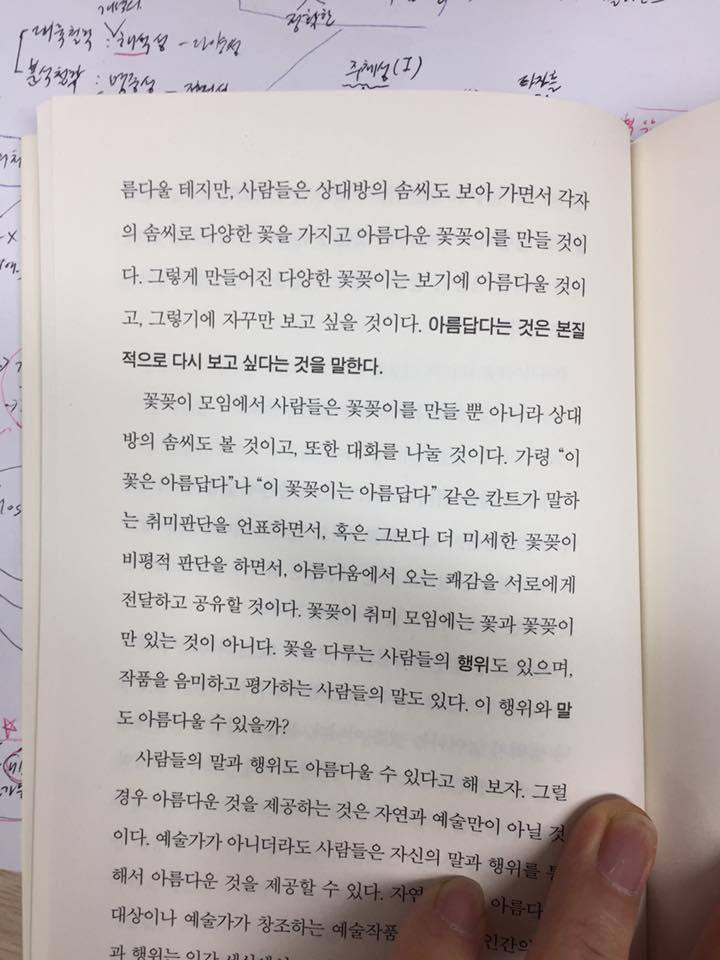 대륙철학 : 해석성 - 다양성
분석철학 : 명증성
정확한
주체성 (I)
타자를
름다울 테지만, 사람들은 상대방의 솜씨도 보아 가면서 각자
의 솜씨로 다양한 꽃을 가지고 아름다운 꽃꽂이를 만들 것이
다. 그렇게 만들어진 다양한 꽃꽂이는 보기에 아름다울 것이
고, 그렇기에 자꾸만 보고 싶을 것이다. 아름답다는 것은 본질
적으로 다시 보고 싶다는 것을 말한다.
꽃꽂이 모임에서 사람들은 꽃꽂이를 만들 뿐 아니라 상대
방의 솜씨도 볼 것이고, 또한 대화를 나눌 것이다. 가령 “이
꽃은 아름답다”나 “이 꽃꽂이는 아름답다” 같은 칸트가 말하
는 취미판단을 언표하면서, 혹은 그보다 더 미세한 꽃꽂이
비평적 판단을 하면서, 아름다움에서 오는 쾌감을 서로에게
전달하고 공유할 것이다. 꽃꽂이 취미 모임에는 꽃과 꽃꽂이
만 있는 것이 아니다. 꽃을 다루는 사람들의 행위도 있으며,
작품을 음미하고 평가하는 사람들의 말도 있다. 이 행위와 말
도 아름다울 수 있을까?
사람들의 말과 행위도 아름다울 수 있다고 해 보자. 그럴
경우 아름다운 것을 제공하는 것은 자연과 예술만이 아닐 것
이다. 예술가가 아니더라도 사람들은 자신의 말과 행위를 통
해서 아름다운 것을 제공할 수 있다. 자연 아름다
대상이나 예술가가 창조하는 예술작품 인간의
과 행위는 인간 세상에